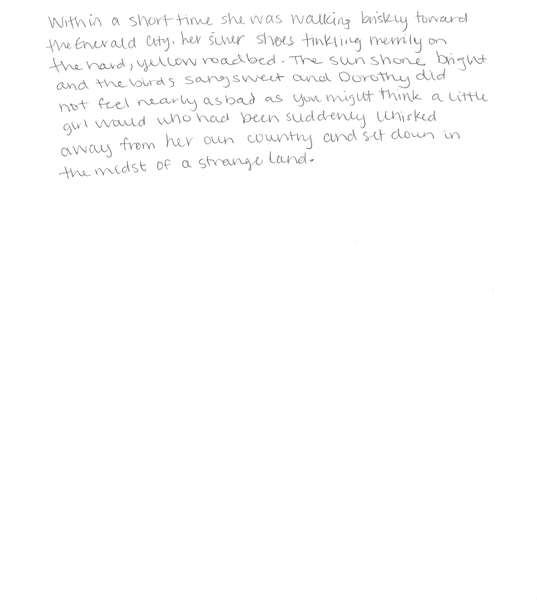 Within a short time she was walking briskly toward
the Emerald City. her silver shoes tinkling merrily on
the hard, yellow roadbed. The sun shone bright
and the birds sang sweet and Dorothy did
not feel nearly as bad as you might think a little
girl would who had been suddenly whisked
away from her own country and set down in
the midst of a strange land.